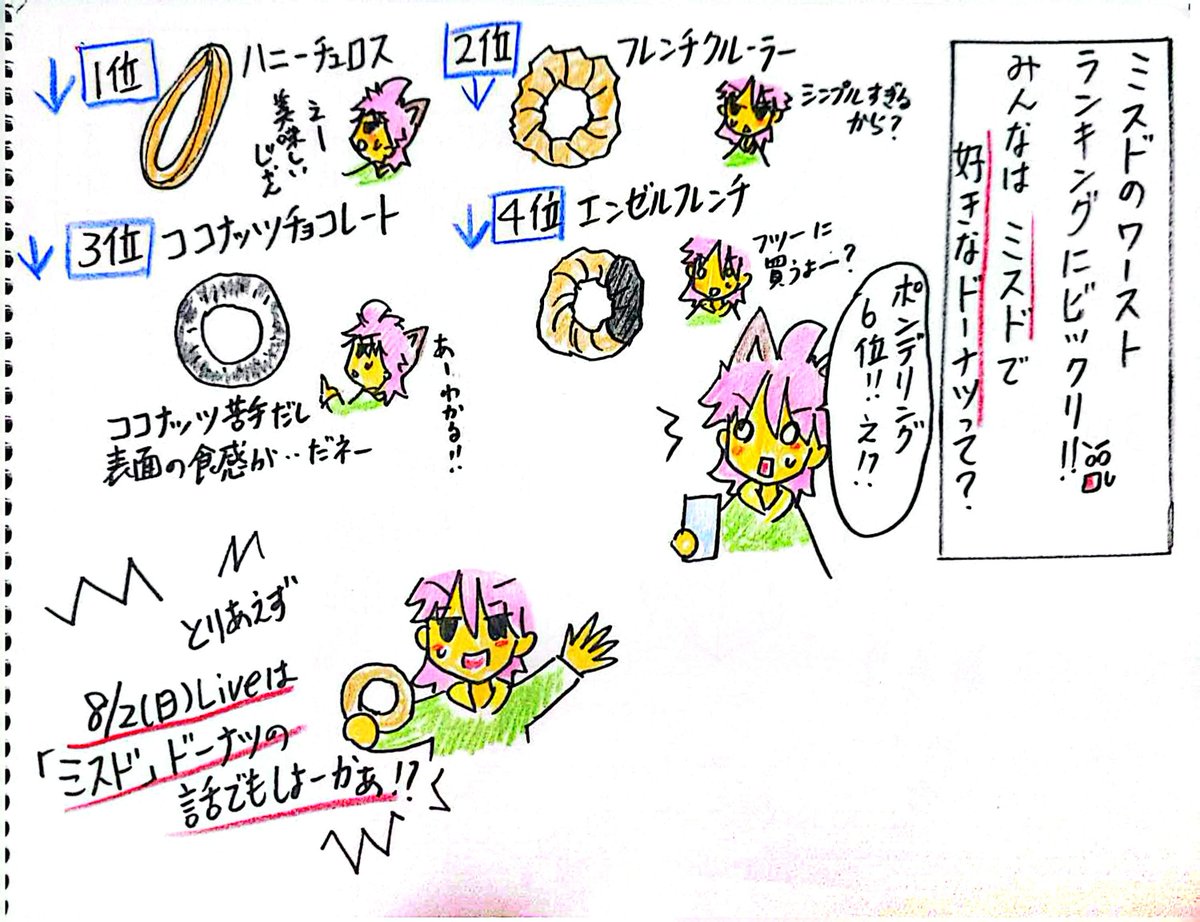 ミスドのワースト
ランキングにビックリ!!
みんなは ミスドで
好きなドーナツって?
1位
ハニーチュロス
えー
美味しい
じゃん
2位
フレンチクルーラー
シンプルすぎる
から?
3位
ココナッツチョコレート
あーわかる!!
ココナッツ苦手だし
表面の食感が‥だネー
4位
エンゼルフレンチ
フツーに
買うよー?
ポンデリング
6位!!え!?
とりあえず
8/2(日)Liveは
「ミスド」ドーナツの
話でもしよーかぁ!?